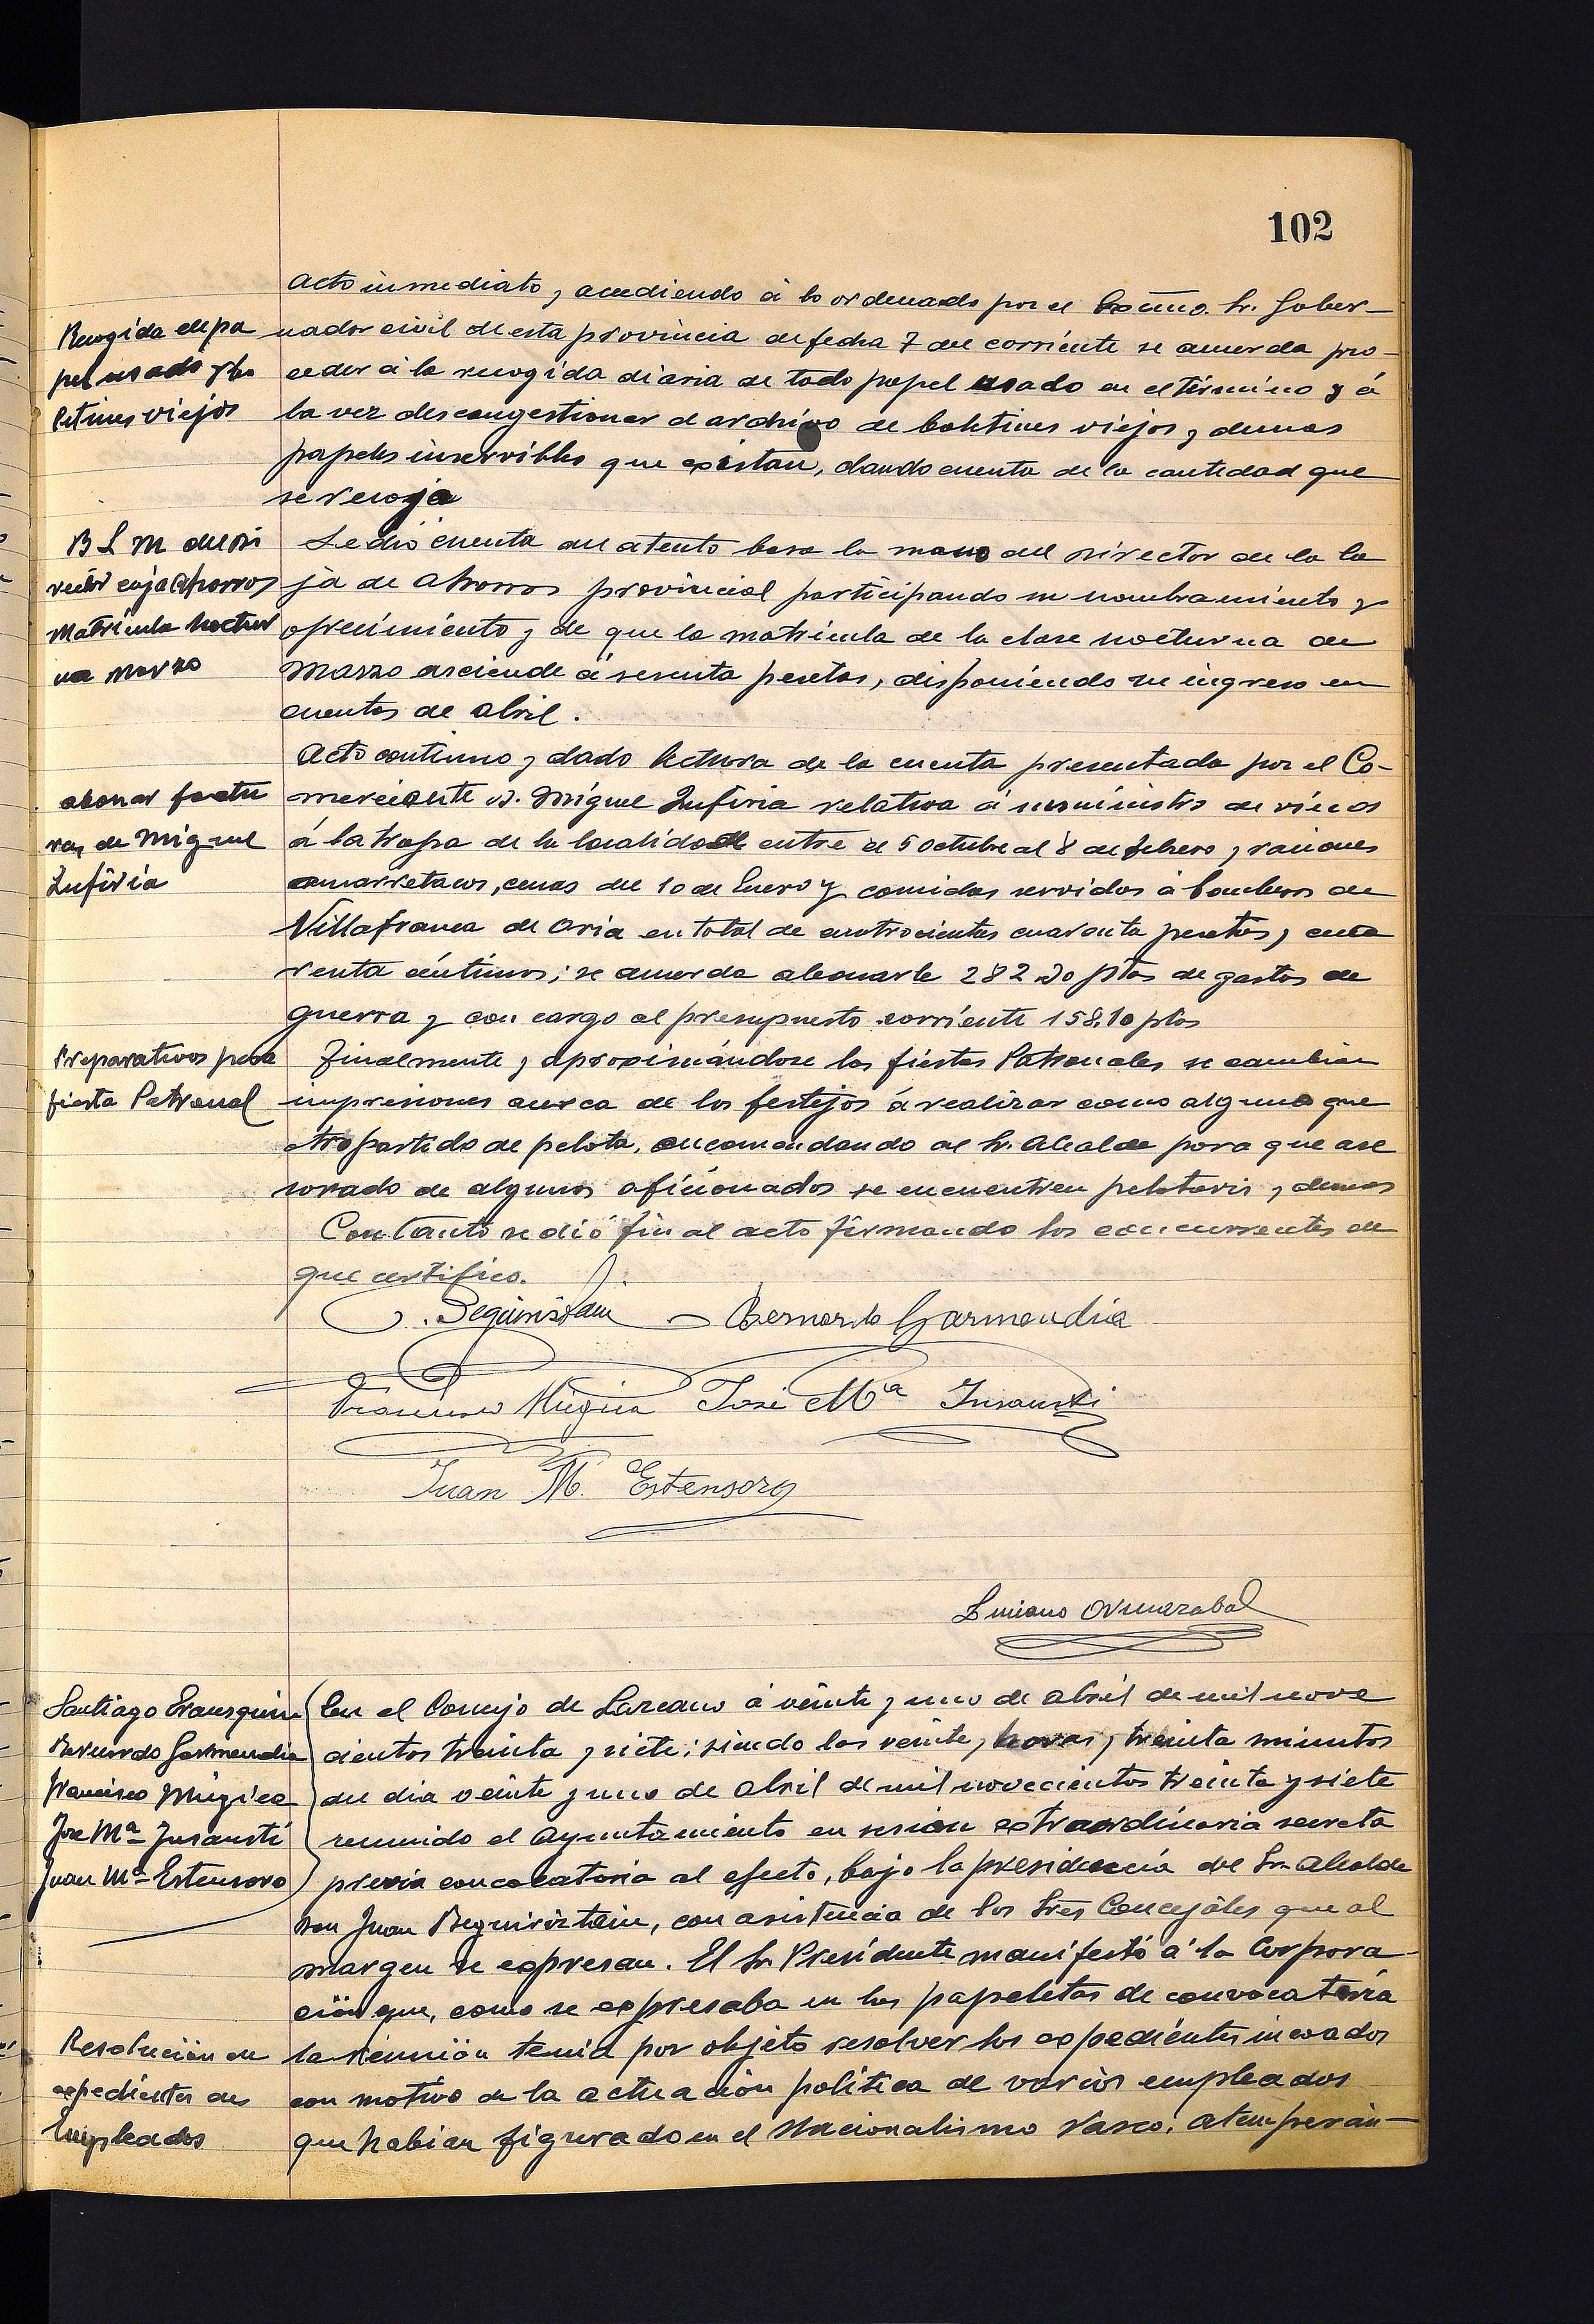 102
Acto inmediato y accediendo á lo ordenado por el Excmo. Sr. Gober-
Recogida de pa
pel usado y bo
letines viejos
nador civil de esta provincia de fecha 7 del corriente se acuerda pro-
ceder á la recogida diaria de todo papel usado en el término y á
la vez descongestionar el archivo de boletines viejos y demas
papeles inservibles que existan, dando cuenta de la cantidad que
se recoja
B L M del Di
rector caja ahorros
Matricula noctur
na Marzo
Se dió cuenta del atento besa la mano del Director de la Ca
ja de Ahorros provincial participando su nombramiento y
ofrecimiento y de que la matricula de la clase nocturna de
Marzo asciende á sesenta pesetas, disponiendo su ingreso en
cuentas de abril.
Acto continuo y dado lectura de la cuenta presentada por el Co-
abonar factu
ras de Miguel
Zufiria
merciante D. Miguel Zufiria relativa á suministro de vinos
á la tropa de la localidad entre el 5 octubre al 8 de febrero y raciones
cenas del 10 de Enero y comidas servidas á bomberos de
Villafranca de Oria en total de cuatrocientas cuarenta pesetas y cua
renta céntimos; se acuerda abonarle 282 ptas de gastos de
guerra y con cargo al presupuesto corriente 158,10 ptas
Preparativos para
fiesta Patronal
Finalmente y aproximándose las fiestas Patronales se cambian
impresiones acerca de los festejos á realizar como alguno que
otro partido de pelota, encomendando al Sr. Alcalde para que ase
sorado de algunos aficionados se encuentren pelotaris y demas
Con tanto se dió fin al acto firmando los concurrentes de
que certifico.
J. Beguiristain Bernardo Garmendia
Francisco Múgica José Mª Insausti
Juan M. Estensoro
Luciano Ormazabal
Santiago Erausquin
Bernardo Garmendia
Francisco Múgica
Jose Mª Insausti
Juan Mª Estensoro
En el Concejo de Lazcano á veinte y uno de abril de mil nove
cientos treinta y siete; siendo las veinte y horas y treinta minutos
del dia veinte y uno de Abril de mil novecientos treinta y siete
reunido el Ayuntamiento en sesion extraordinaria secreta
previa convocatoria al efecto, bajo la presidencia del Sr. Alcalde
Don Juan Beguiristain, con asistencia de los Sres Concejales que al
margen se expresan. El Sr. Presidente manifestó á la Corpora-
ción que, como se expresaba en las papeletas de convocatoria
Resolución de
expedientes de
Empleados
la reunión tenia por objeto resolver los expedientes incoados
con motivo de la actuación política de varios empleados
que habian figurado en el Nacionalismo Vasco; atemperán-